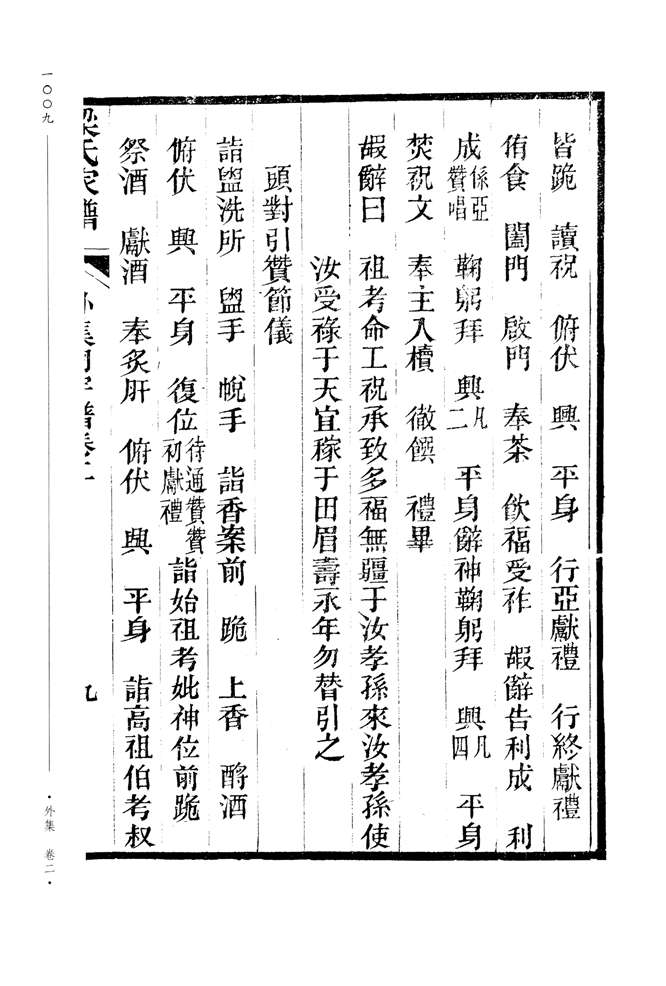 皆跪　讀祝　俯伏　興　平身　行亞獻禮　行終獻禮
侑食　闔門　啟門　奉茶　飲福受祚　嘏辭告利成　利
成係亞贊唱　鞠躬拜　興凡二　平身辭神鞠躬拜　興凡四　平身
焚祝文　奉主入櫝　徹饌　禮畢
嘏辭曰　祖考命工祝承致多福無疆于汝孝孫來汝孝孫使
汝受祿于天宜稼于田眉壽永年勿替引之
頭對引贊節儀
詣盥洗所　盥手　帨手　詣香案前　跪　上香　酹酒
俯伏　興　平身　復位待通贊贊初獻禮　詣始祖考妣神位前跪
祭酒　獻酒　奉炙肝　俯伏　興　平身　詣高祖伯考叔
梁氏家譜　外集　譜卷二　九
一〇〇九
·外集　卷二·